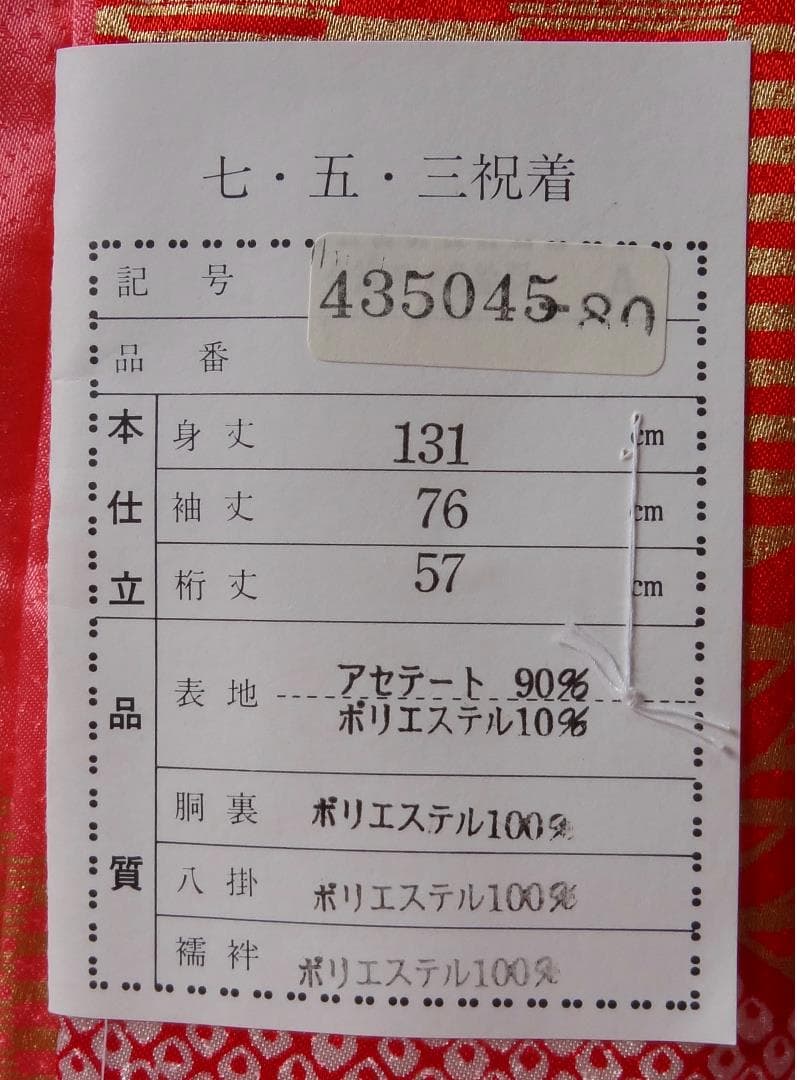 七・五・三祝着
記号 435045-80
品番
本仕立
身丈 131 cm
袖丈 76 cm
裄丈 57 cm
品質
表地 アセテート 90%
ポリエステル10%
胴裏 ポリエステル100%
八掛 ポリエステル100%
襦袢 ポリエステル100%